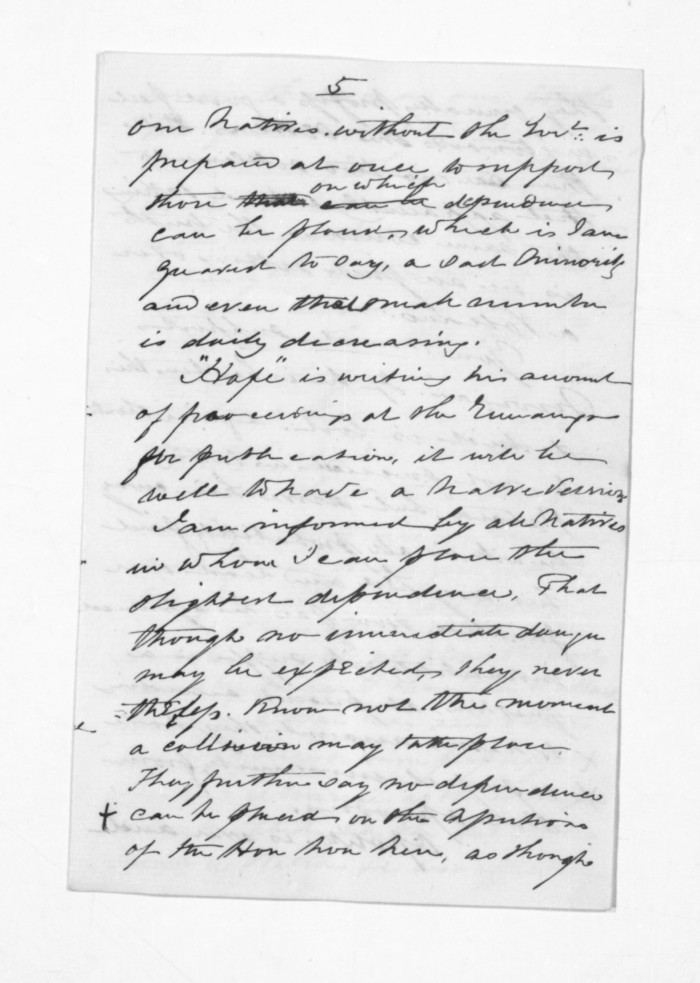 5
our Natives. without the Govt. is
prepared at once to support
those on which dependence
can be placed, which is I am
grieved to say, a sad Minority
and even that small number
is daily decreasing.
"Hapi" is writing his account
of proceedings at the
for publication, it will be
well to have a Native Version
I am informed by all Natives
in whom I can place the
slightest dependence, That
though no immediate danger
may be expected, they never
-theless. Know not the moment
a collision may take place.
They further say no dependence
+ can be placed on the assertions
of the Hau hau here, as though